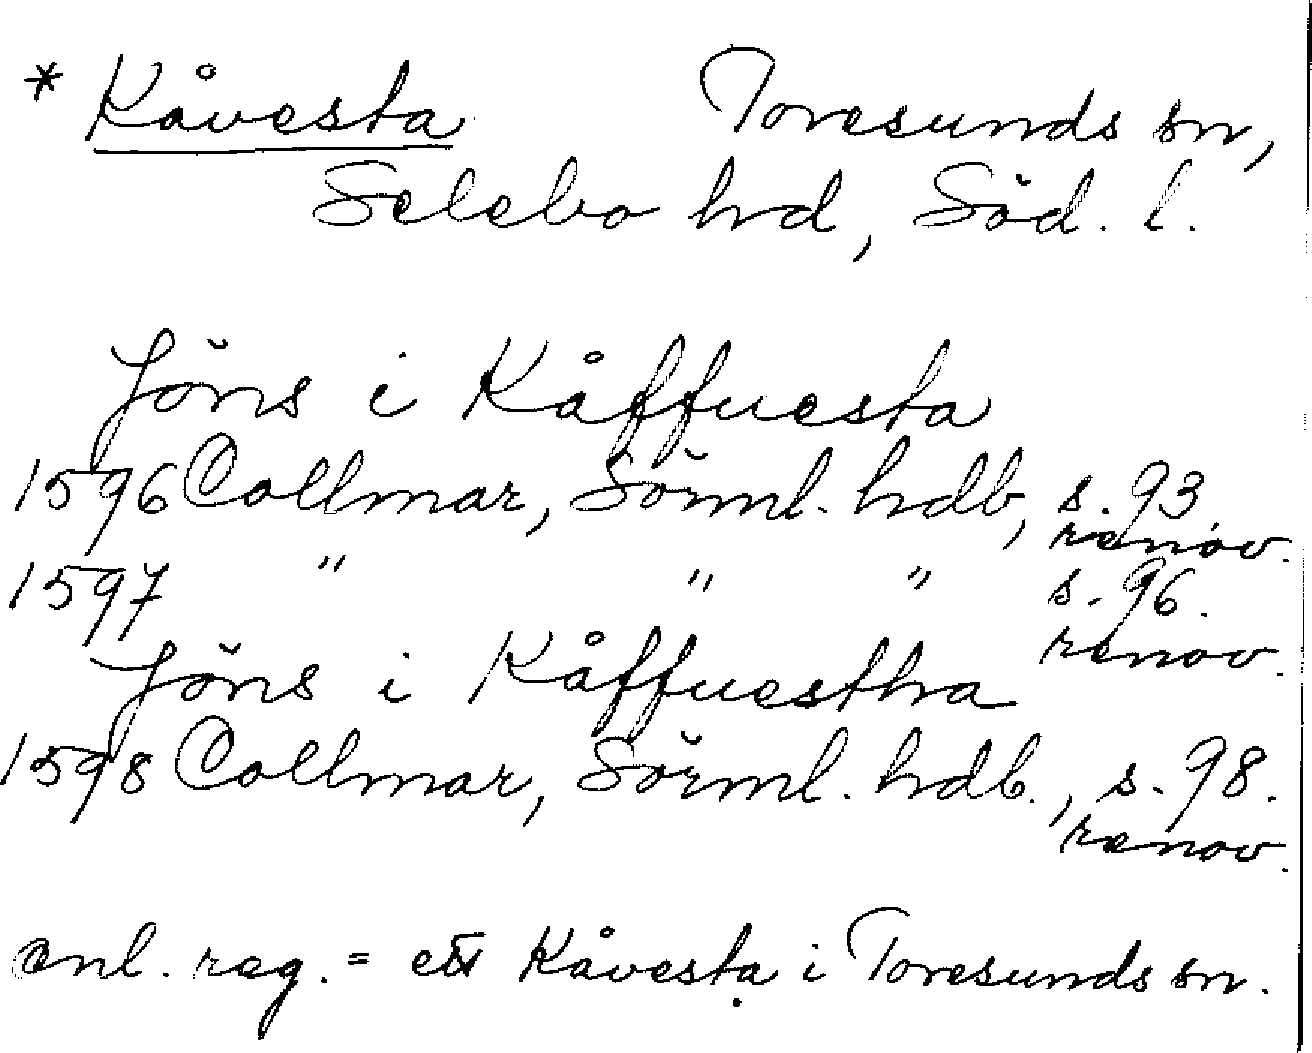 * Kåvesta Toresunds sn,
Selebo hd, Söd. l.
Jöns i Kåffuesta
1596 Collmar, Sörml. hdb, s. 93.
renov.
1597 " " " s. 96.
renov.
Jöns i Kåffuestha
1598 Collmar, Sörml. hdb., s. 98.
renov.
enl. reg. = ett Kåvesta i Toresunds sn.